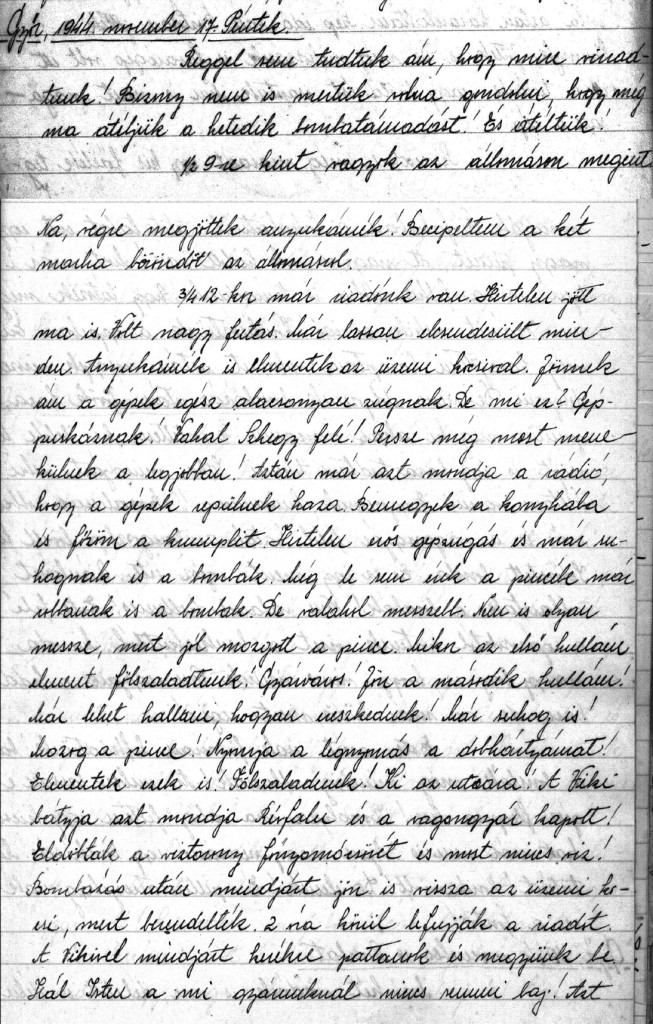 Győr, 1944. november 17. Péntek.
Reggel sem tudtuk ám, hogy mire virrad-
tunk! Bizony nem is mertük volna gondolni, hogy még
ma átéljük a hetedik bombatámadást! És átéltük!
1/2 9-re kint vagyok az állomáson megint.
Na, végre megjöttek anyukámék! Becipeltem a két
marha böröndöt az állomásról.
3/4 12-kor már riadónk van. Hirtelen jött
ma is. Volt nagy futás. Már lassan elcsendesült min-
den. Anyukámék is elmentek az üzemi kocsival. Jönnek
ám a gépek egész alacsonyan zúgnak. De mi ez? Gép-
puskáznak! Vahal Szhegy felé! Persze még most mene-
külnek a legjobban! Aztán már azt mondja a rádió,
hogy a gépek repülnek haza. Bemegyek a konyhába
és főzöm a krumplit. Hirtelen erős gépzúgás és már su-
hognak is a bombák. Még le sem érek a pincébe már
robbanak is a bombák. De valahol messzebb. Nem is olyan
messze, mert jól mozgott a pince. Mikor az első hullám
elment fölszaladtunk! Gyárváros! Jön a második hullám!
Már lehet hallani, hogyan ereszkednek! Már suhog is!
Mozog a pince! Nyomja a légnyomás a dobhártyámat!
Elmentek ezek is! Fölszaladunk! Ki az utcára! A Viki
bátyja azt mondja Révfalu és a vagongyár kapott!
Eldobták a víztorony főnyomócsövét és most nincs víz!
Bombázás után mindjárt jön is vissza az üzemi ko-
csi, mert berendelték. 2 óra körül lefújják a riadót.
A Vikivel mindjárt kerékre pattanok és megyünk be.
Hál Isten a mi gyárunknál nincs semmi baj! Azt